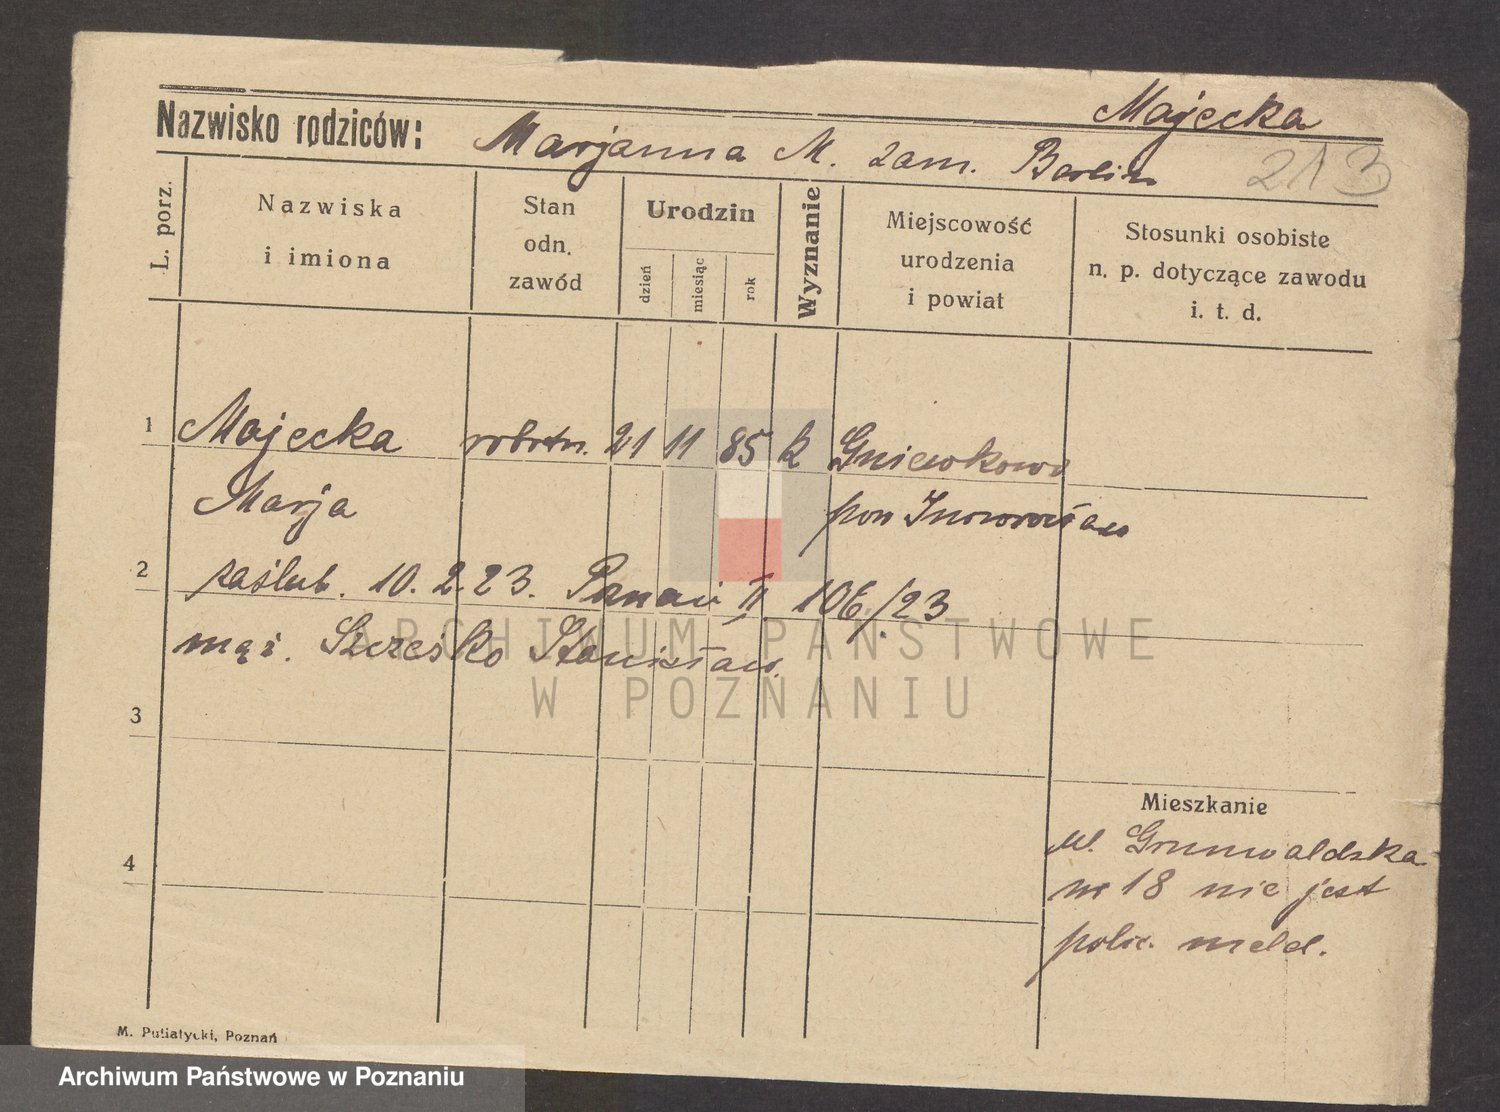 Majecka
Nazwisko rodziców: Marjanna M. zam. Berlin
213
L. porz.
Nazwiska
i imiona
Stan
odn.
zawód
Urodzin
dzień
miesiąc
rok
Wyznanie
Miejscowość
urodzenia
i powiat
Stosunki osobiste
n. p. dotyczące zawodu
i. t. d.
1 Majecka robotn. 21 11 85 k Gniewkowo
Marja pow Inowrocław
2 zaślub. 10. 2. 23. Poznań II 106./23
mąż. Szcześko Stanisław.
ARCHIWUM PAŃSTWOWE
W POZNANIU
3
Mieszkanie
ul. Grunwaldzka
4
nr 18 nie jest
polic. meld.
M. Putiatycki, Poznań
Archiwum Państwowe w Poznaniu